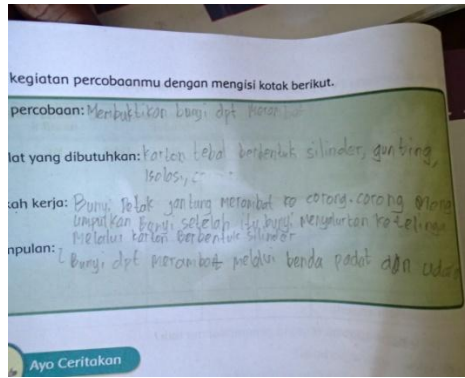 kegiatan percobaanmu dengan mengisi kotak berikut.
percobaan: Membuktikan bunyi dpt merambat
lat yang dibutuhkan: karton tebal berbentuk silinder, gunting,
isolasi,
kah kerja: Bunyi detak jantung merambat ke corong. corong
umpulkan bunyi setelah itu bunyi menyalurkan ketelinga
melalui karton berbentuk silinder
mpulan: Bunyi dpt merambat melalui benda padat dan udara
Ayo Ceritakan